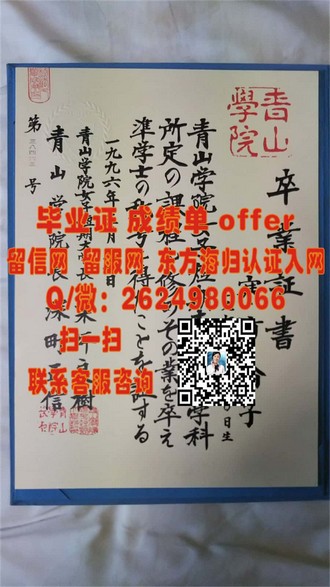 青山
學院
卒業証書
青山学院女子短期大学
学科
所定の課程を修めその業を卒え
準学士の称号を得たことを証する
一九九六年
青山学院女子短期大学長
青山学院長 深町正信
第
号
毕业证 成绩单 offer
留信网 留服网 东方海归认证入网
Q/微：2624980066
扫一扫
联系客服咨询